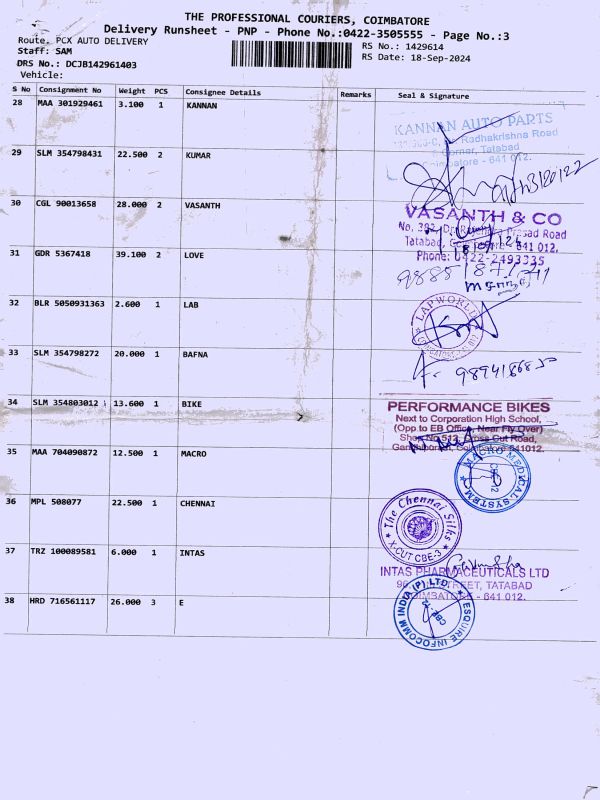 THE PROFESSIONAL COURIERS, COIMBATORE
Delivery Runsheet - PNP - Phone No.:0422-3505555 - Page No.:3
Route. PCX AUTO DELIVERY
RS No.: 1429614
Staff: SAM
RS Date: 18-Sep-2024
DRS No.: DCJB142961403
Vehicle:
S No Consignment No Weight PCS Consignee Details Remarks Seal & Signature
28 MAA 301929461 3.100 1 KANNAN
KANNAN AUTO PARTS
Radhakrishna Road
Corner, Tatabad
Coimbatore - 641 012.
29 SLM 354798431 22.500 2 KUMAR
30 CGL 90013658 28.000 2 VASANTH
VASANTH & CO
No. 392, Dr. Rajendra Prasad Road
Tatabad, Coimbatore 641 012.
Phone: 0422-2493335
31 GDR 5367418 39.100 2 LOVE
32 BLR 5050931363 2.600 1 LAB
LAPWORLD
33 SLM 354798272 20.000 1 BAFNA
34 SLM 354803012 13.600 1 BIKE
PERFORMANCE BIKES
Next to Corporation High School,
(Opp to EB Office, Near Fly Over)
Shop No 512, Cross Cut Road,
Gandhipuram, Coimbatore 641012.
35 MAA 704090872 12.500 1 MACRO
MACRO MEDICAL SYSTEM
36 MPL 508077 22.500 1 CHENNAI
The Chennai Silks
X-CUT CBE-3
37 TRZ 100089581 6.000 1 INTAS
INTAS PHARMACEUTICALS LTD
STREET, TATABAD
COIMBATORE - 641 012.
38 HRD 716561117 26.000 3 E
ESQUIRE INFOCOMM INDIA (P) LTD.
CBE-12